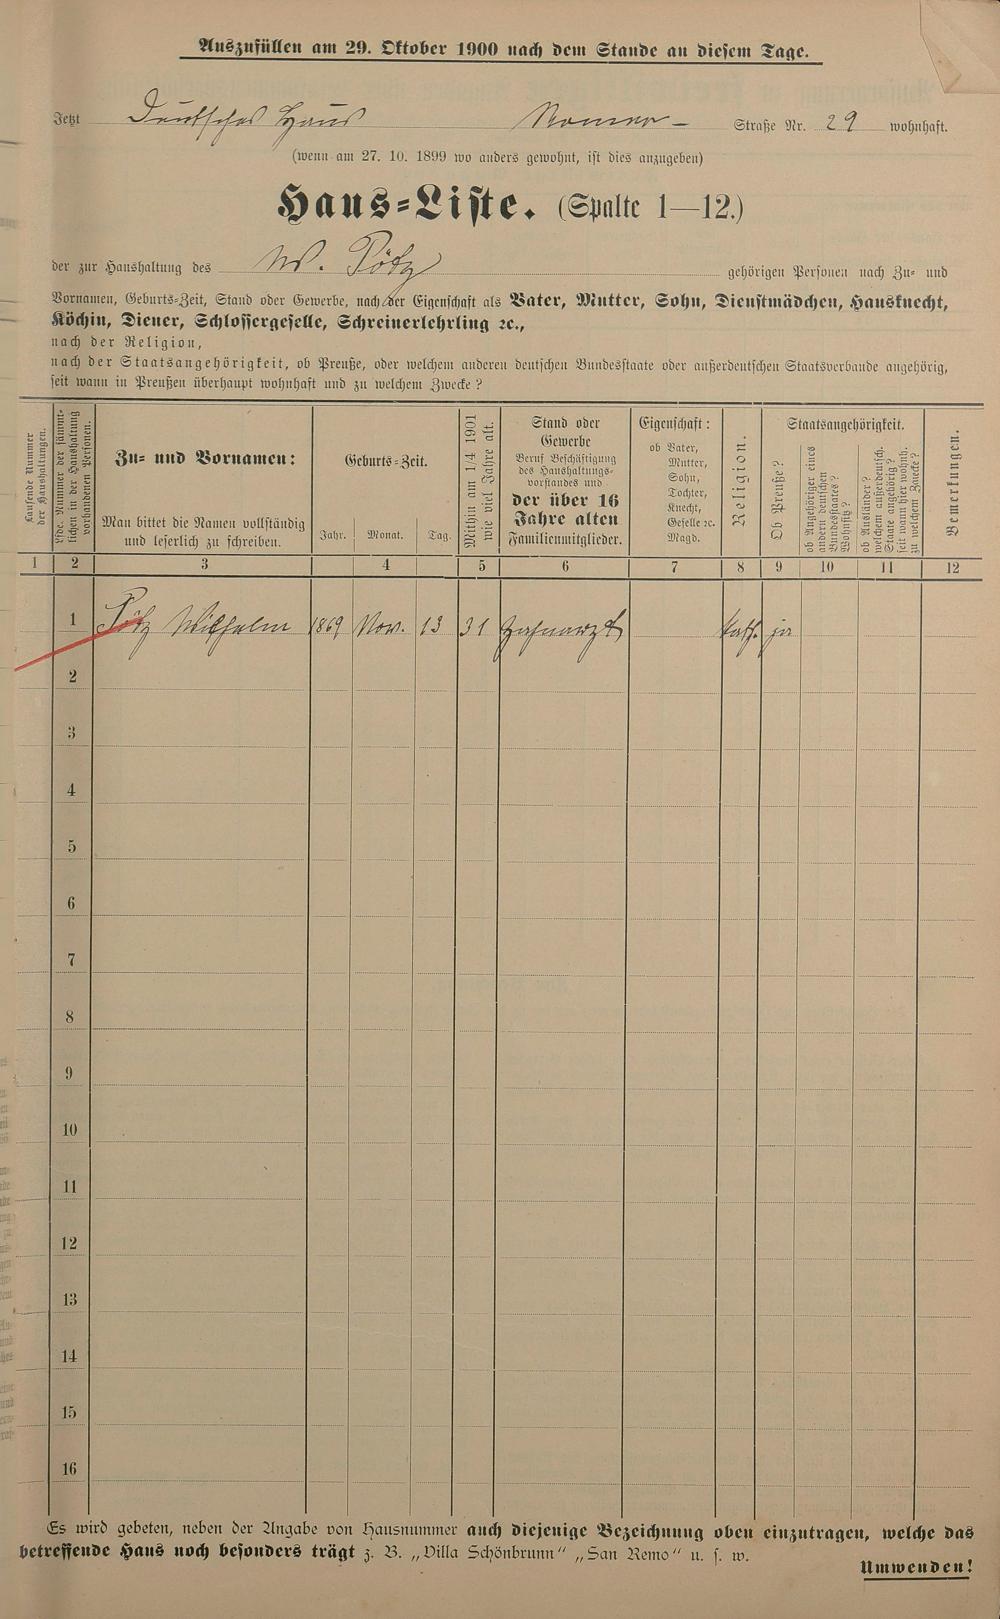 Auszufüllen am 29. Oktober 1900 nach dem Stande an diesem Tage.
Jetzt Deutsches Haus Römer- Straße Nr. 29 wohnhaft.
(wenn am 27. 10. 1899 wo anders gewohnt, ist dies anzugeben)
Haus-Liste. (Spalte 1—12.)
der zur Haushaltung des W. Pötz gehörigen Personen nach Zu- und
Vornamen, Geburts-Zeit, Stand oder Gewerbe, nach der Eigenschaft als Vater, Mutter, Sohn, Dienstmädchen, Hausknecht,
Köchin, Diener, Schlossergeselle, Schreinerlehrling ꝛc.,
nach der Religion,
nach der Staatsangehörigkeit, ob Preuße, oder welchem anderen deutschen Bundesstaate oder außerdeutschen Staatsverbande angehörig,
seit wann in Preußen überhaupt wohnhaft und zu welchem Zwecke?
Laufende Nummer
der Haushaltungen.
Lfde. Nummer der sämmt-
lichen in der Haushaltung
vorhandenen Personen.
Zu- und Vornamen:
Man bittet die Namen vollständig
und leserlich zu schreiben.
Geburts-Zeit.
Jahr. Monat. Tag
Mithin am 1/4 1901
wie viel Jahre alt.
Stand oder
Gewerbe
Beruf Beschäftigung
des Haushaltungs-
vorstandes und
der über 16
Jahre alten
Familienmitglieder.
Eigenschaft:
ob Vater,
Mutter,
Sohn,
Tochter,
Knecht,
Geselle ꝛc.
Magd.
Religion.
Staatsangehörigkeit.
Ob Preuße?
ob Angehöriger eines
andern deutschen
Bundesstaates?
Wohnsitz?
ob Ausländer?
welchem außerdeutsch.
Staate angehörig?
seit wann hier wohnh.
zu welchem Zwecke?
Bemerkungen.
1 2 3 4 5 6 7 8 9 10 11 12
1 Pötz Wilhelm 1869 Nov. 13 31 Zahnarzt kath. ja
2
3
4
5
6
7
8
9
10
11
12
13
14
15
16
Es wird gebeten, neben der Angabe von Hausnummer auch diejenige Bezeichnung oben einzutragen, welche das
betreffende Haus noch besonders trägt z. B. „Villa Schönbrunn“ „San Remo“ u. s. w.
Umwenden!